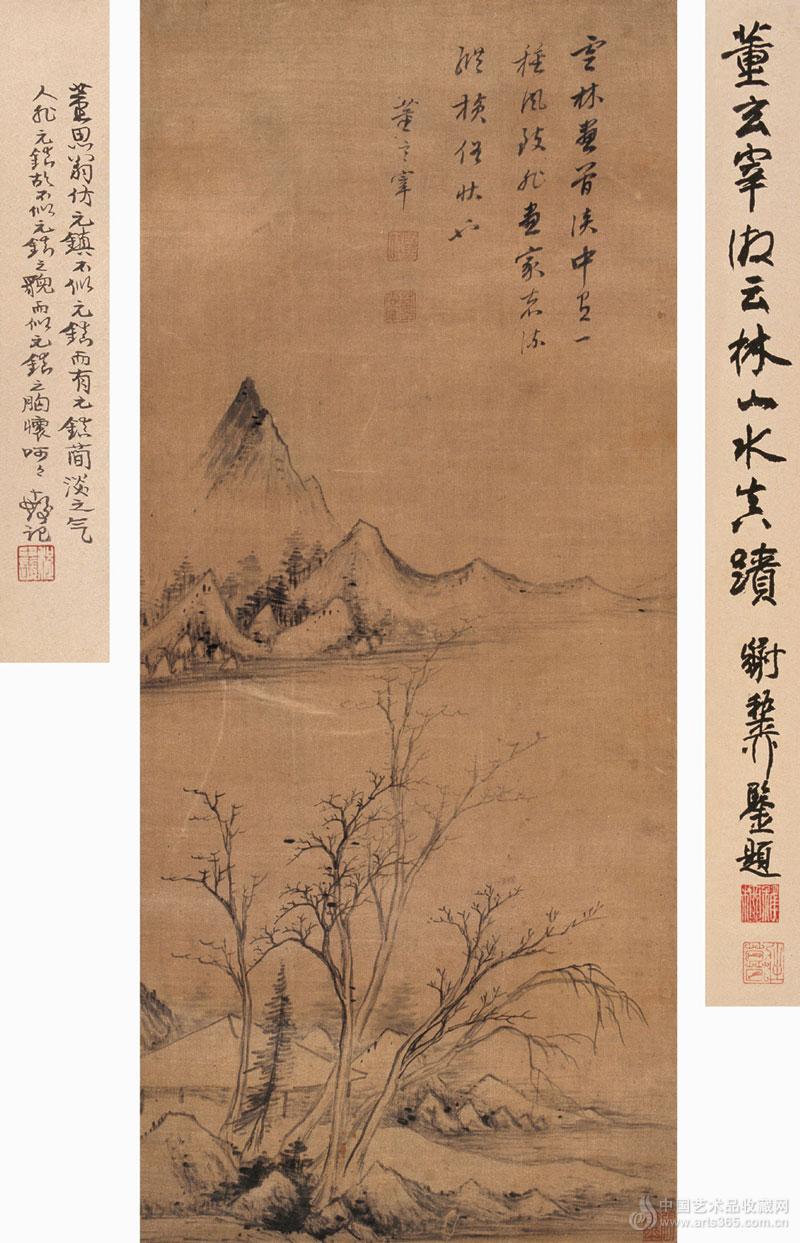 董玄宰倣云林山水真蹟
鑒題
雲林畫簡淡中有一
種風致非畫家者流
縱橫俗狀也
董玄宰
董思翁仿元鎮不似元鎮而有元鎮簡淡之气
人非元鎮故不似元鎮之貌而似元鎮之胸懷呵々 記
中国艺术品收藏网
www.arts365.com.cn